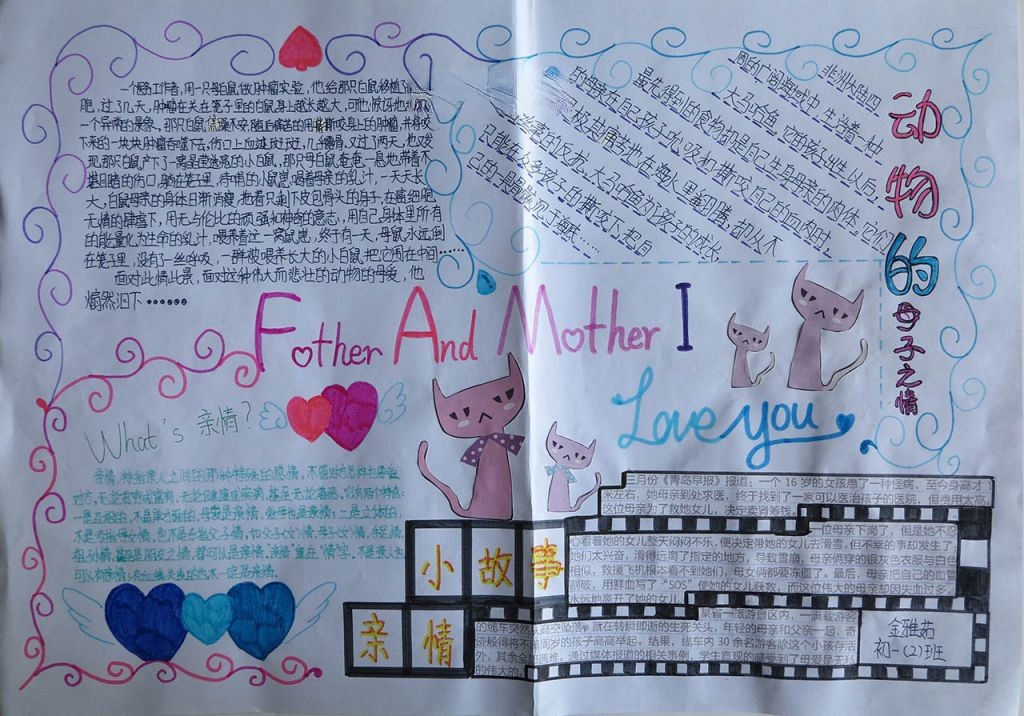 一个医工作者，用一只母白鼠做肿瘤实验，他给那只白鼠移植了
肥，过了几天，肿瘤在关在笼子里的白鼠身上越长越大，可他惊讶地
一个异常的景象，那只白鼠焦躁不安，随后痛苦的用撕咬身上的肿瘤，并将咬
下来的一块块肿瘤吞噬下去，伤口上血迹斑斑，几子露骨，又过了两天，他又发
现那只白鼠产下了一窝晶莹透亮的小白鼠，那只母白鼠奄奄一息地带着不
堪目睹的伤口，躺在笼里，待哺的小鼠崽喝着母亲的乳汁，一天天长
大，白鼠母亲的身体日渐消瘦，拖着只剩下皮包骨头的身子，在癌细胞
无情的肆虐下，用无与伦比的顽强和神奇的意志，用自己身体里所有
的能量化为生命的乳汁，喂养着这一窝鼠崽，终于有一天，母鼠永远倒
在笼里，没有了一丝呼吸，一群被喂养长大的小白鼠，把它围在中间……
面对此情此景，面对这种伟大而悲壮的动物的母爱，他
潸然泪下……
动物的母子之情
非洲大陆四
周的广阔海域中，生活着一种
大马哈鱼，它的孩子出生以后，
最先得到的食物却是自己生身母亲的肉体。它们
的母亲在自己孩子吮吸和撕咬自己的血肉时，
极担痛苦地在海水里翻腾，却从不
给以丝毫的反抗，大马哈鱼为了孩子的成长
只能在众多孩子的撕咬下，把自
Father And Mother I
Love you
What's 亲情？
亲情，特指亲人之间的那种特殊的感情，不管对方怎样也要爱
对方，无论贫穷或富有，无论健康或疾病，甚至无论善恶。它有两个特点：
一是互相的，不是单方面的，母爱是亲情，爱母也是亲情；二是立体的，
不是专指母女情，也不是专指父子情，如父子(女)情，母子(女)情，手足情，
祖孙情，甚至是朋友之情，都可以是亲情。
小故事
亲情
三月份《青岛早报》报道：一个 16 岁的女孩患了一种怪病，至今身高才
米左右，她母亲到处求医，终于找到了一家可以医治孩子的医院，但费用太高，
这位母亲为了救她女儿，决定卖肾筹钱。
一位母亲下岗了，但是她不忍
心看着她的女儿整天闷闷不乐，便决定带她的女儿去滑雪，但不幸的事却发生了，
她们太兴奋，滑得远离了指定的地方，导致雪崩，母亲俩穿的银灰色衣服与白雪
相似，救援飞机根本看不到她们，母女俩都要冻僵了。最后，母亲把自己的血管
割破，用鲜血写了“SOS”使她的女儿获救，而这位伟大的母亲却因失血过多，
永远地离开了她的女儿。
某省一旅游景区内，一满载游客
的缆车突然从高空坠落，就在转瞬即逝的生死关头，年轻的母亲和父亲一起，奇
迹般得将不满周岁的孩子高高举起。结果，缆车内 30 余名游客除这个小孩存活
外，其余全部遇难。通过媒体报道的相关事例，学生直观的感受到了母爱是无私
的伟大的。
金雅茹
初一(2)班